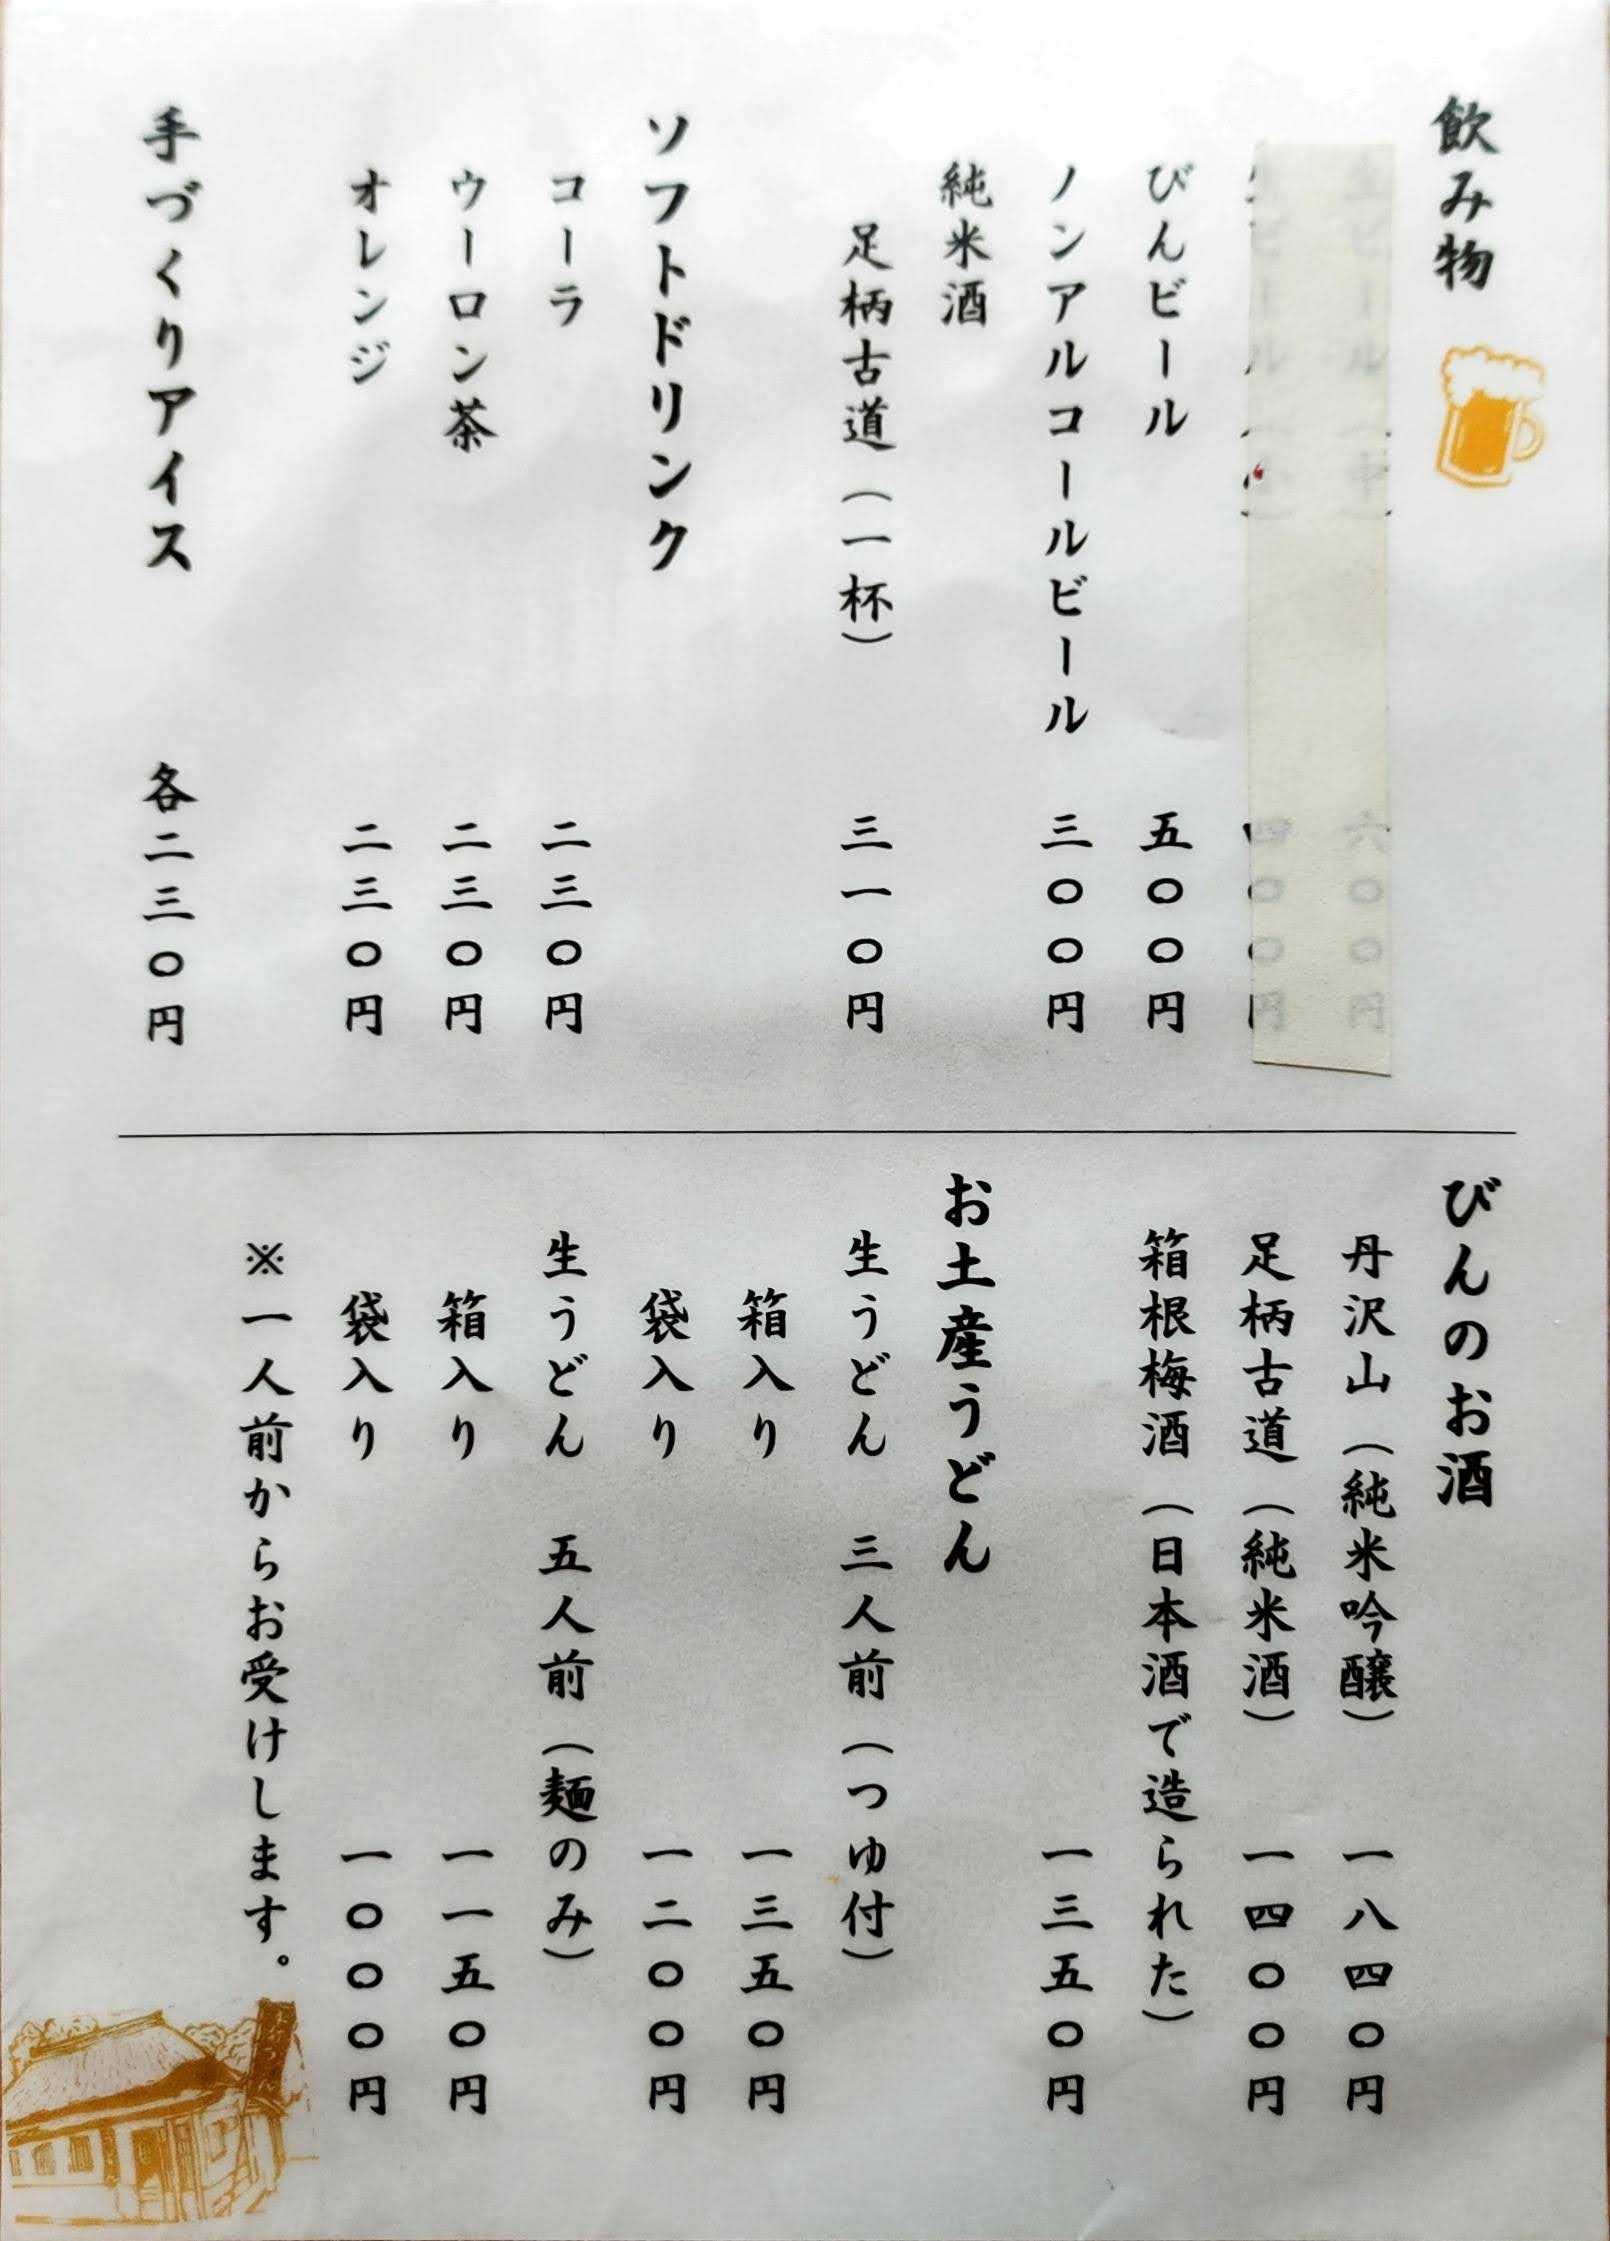 飲み物
びんビール 五〇〇円
ノンアルコールビール 三〇〇円
純米酒
足柄古道（一杯） 三一〇円
ソフトドリンク
コーラ 二三〇円
ウーロン茶 二三〇円
オレンジ 二三〇円
手づくりアイス 各二三〇円
びんのお酒
丹沢山（純米吟醸） 一八四〇円
足柄古道（純米酒） 一四〇〇円
箱根梅酒（日本酒で造られた）
一三五〇円
お土産うどん
生うどん 三人前（つゆ付）
箱入り 一三五〇円
袋入り 一二〇〇円
生うどん 五人前（麺のみ）
箱入り 一一五〇円
袋入り 一〇〇〇円
※一人前からお受けします。